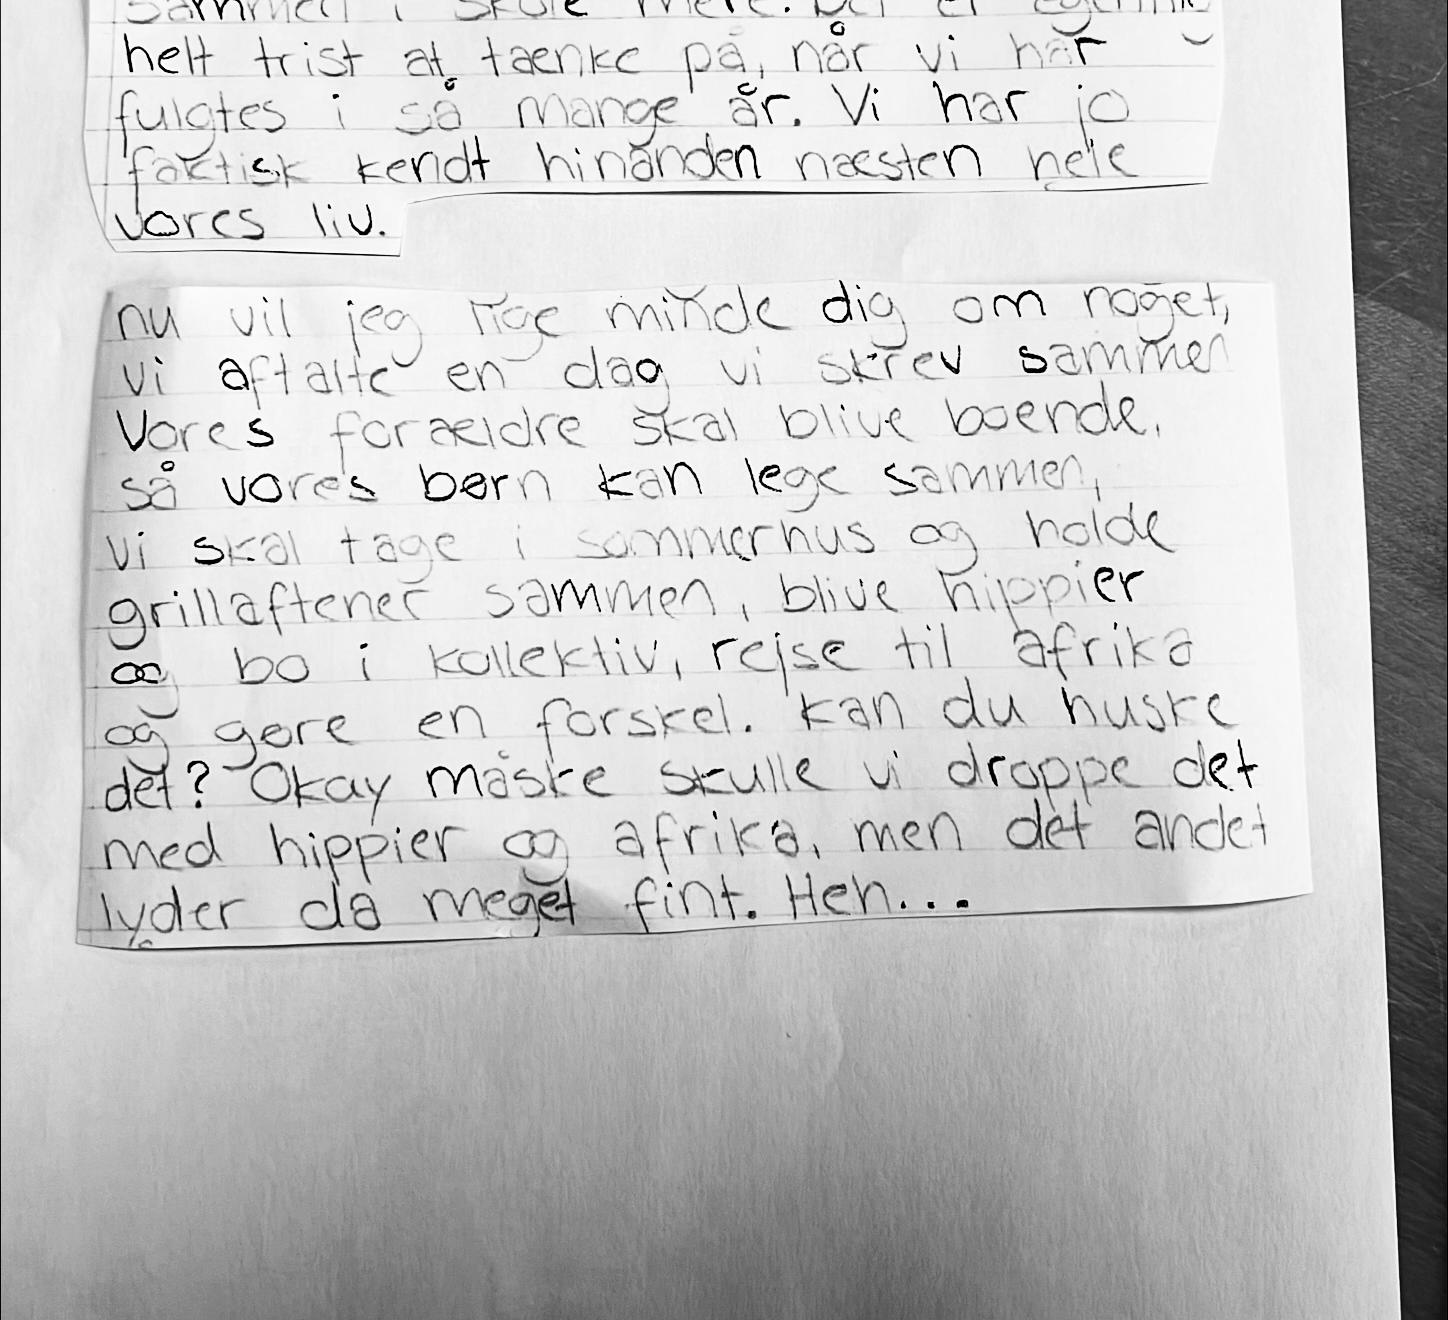 sammen i skole mere. Det er egentlig
helt trist at tænke på, når vi har
fulgtes i så mange år. Vi har jo
faktisk kendt hinanden næsten hele
vores liv.
nu vil jeg lige minde dig om noget,
vi aftalte en dag vi skrev sammen
Vores forældre skal blive boende,
så vores børn kan lege sammen,
vi skal tage i sommerhus og holde
grillaftener sammen, blive hippier
og bo i kollektiv, rejse til afrika
og gøre en forskel. Kan du huske
det? Okay måske skulle vi droppe det
med hippier og afrika, men det andet
lyder da meget fint. Heh...